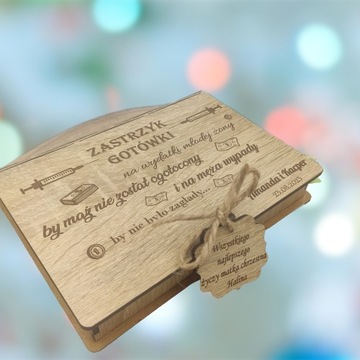 ZASTRZYK
GOTÓWKI
na wydatki młodej żony
by mąż nie został ogołocony
i na męża wypady
by nie było zdrady...
Amanda i Kacper
Wszystkiego
najlepszego
życzy matka chrzestna
Halina